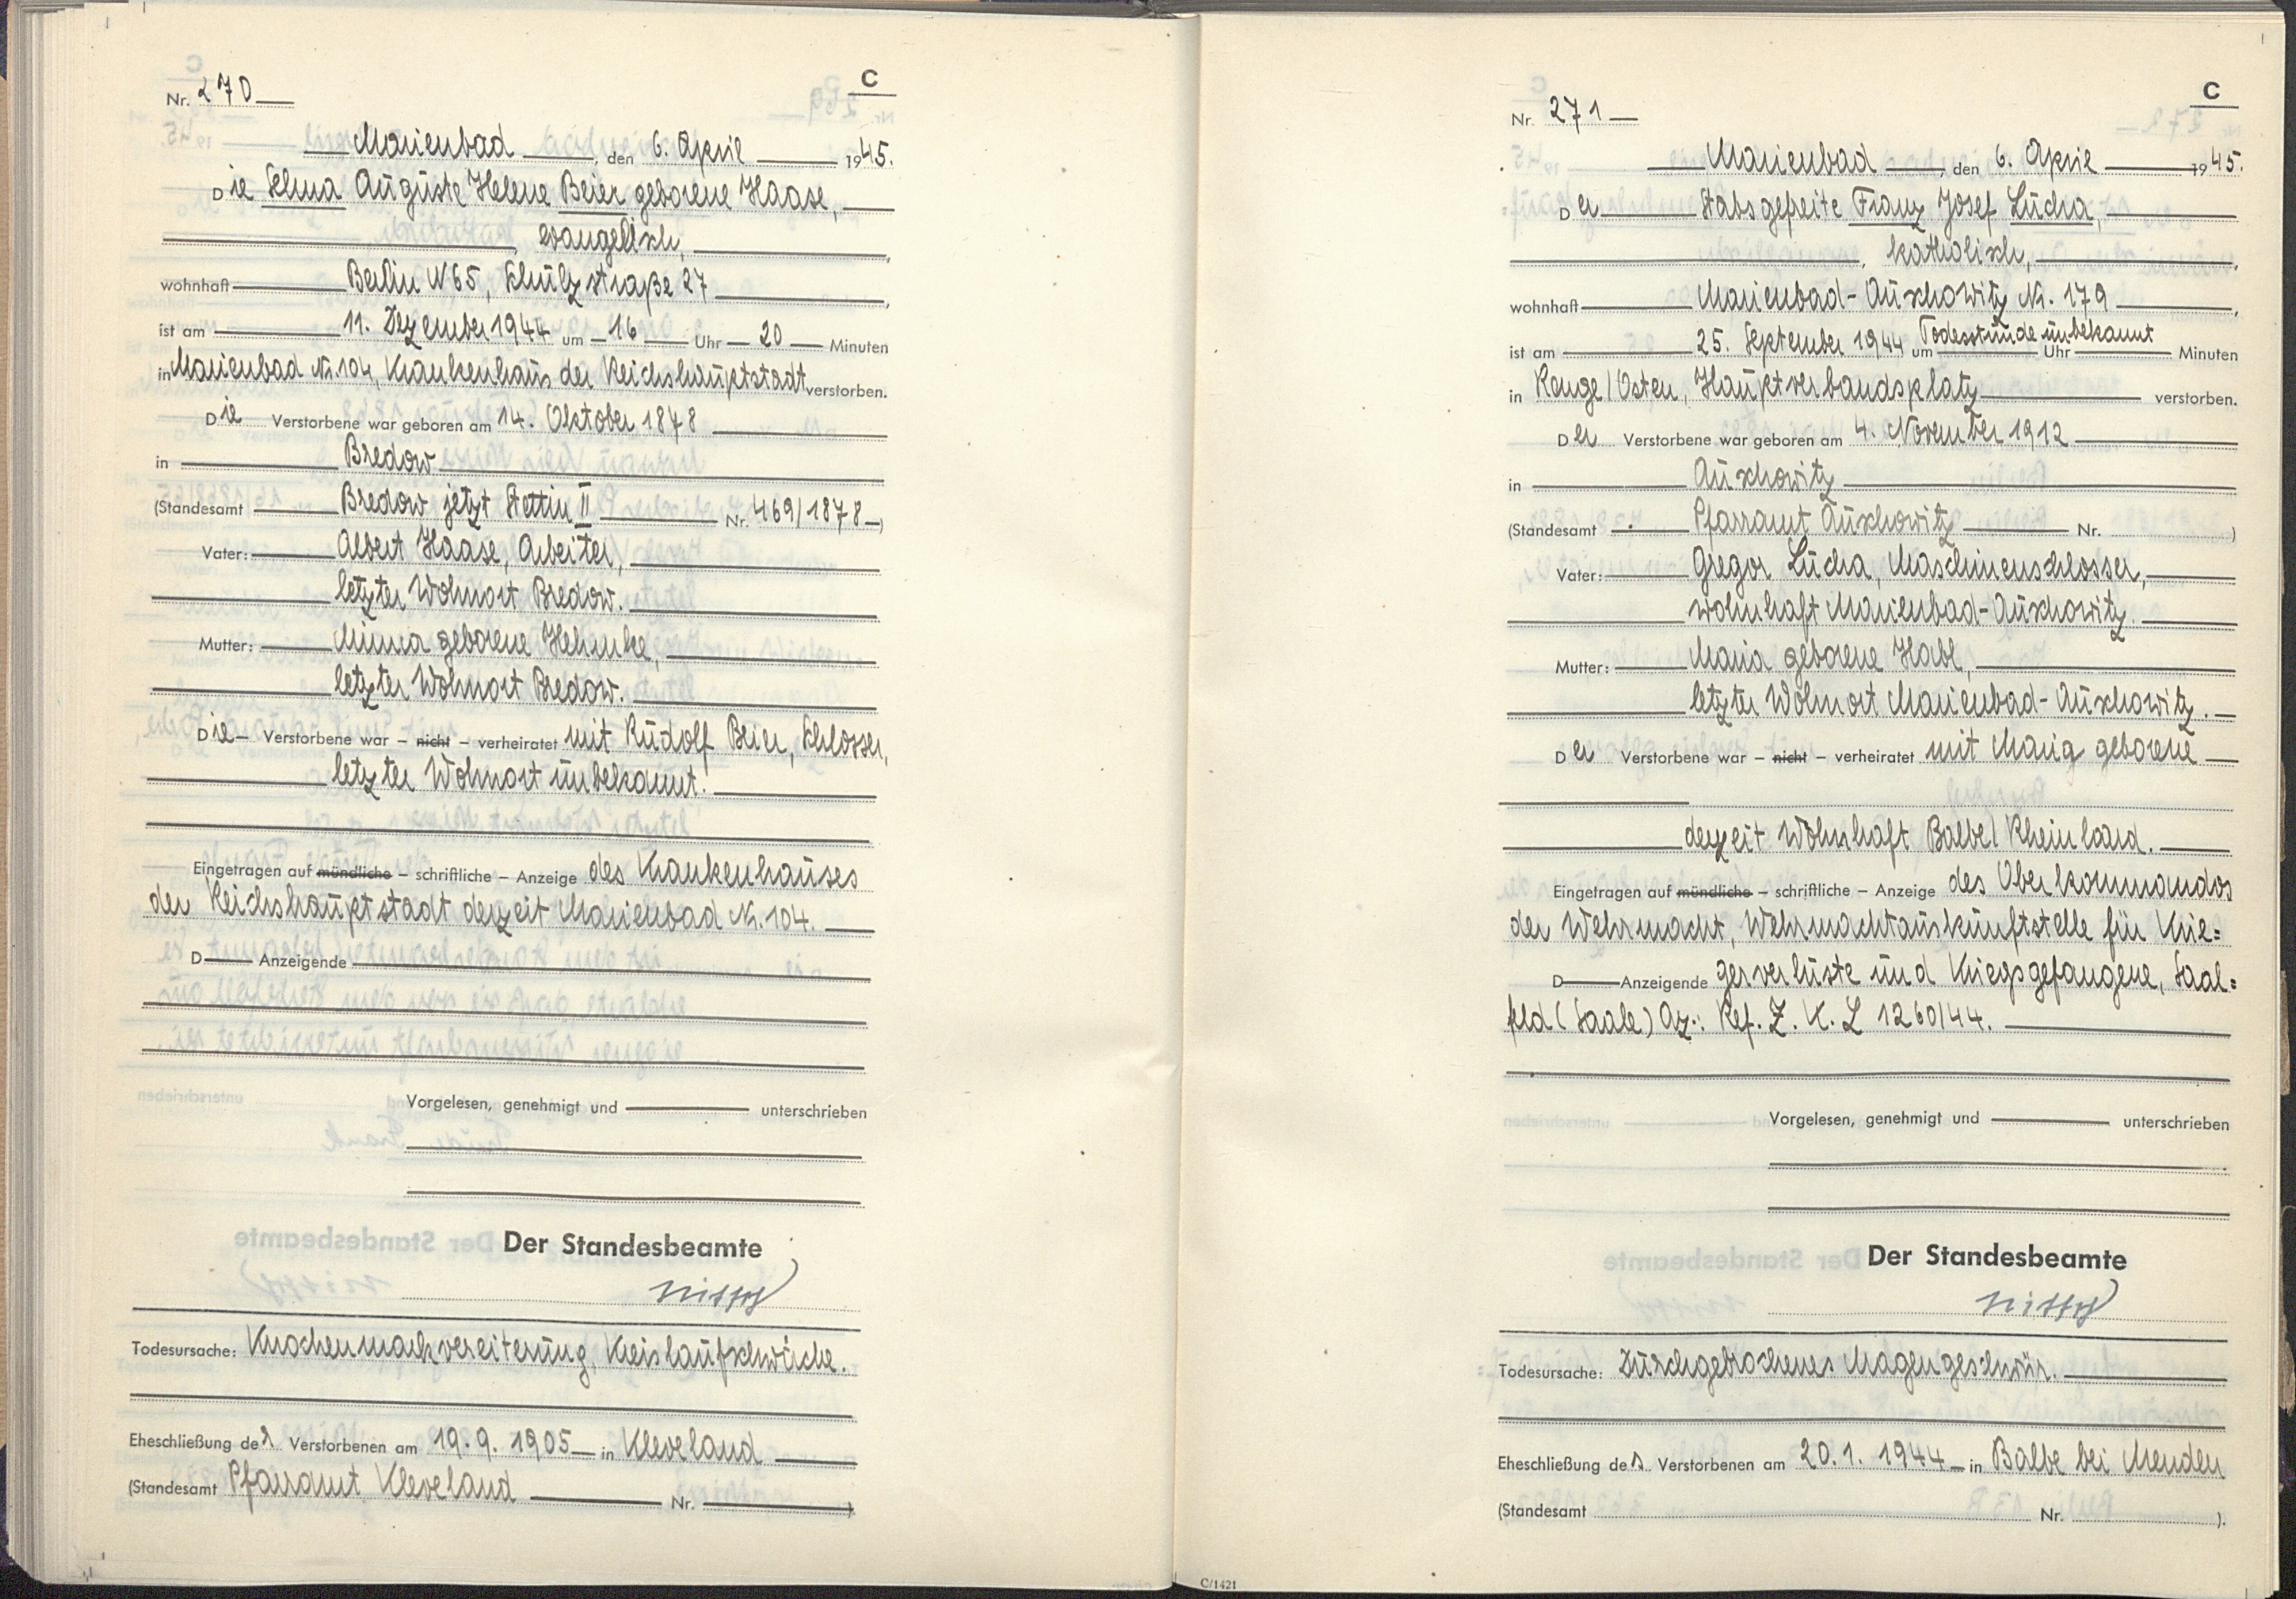 C
Nr. 270
Marienbad, den 6. April 1945.
Die Selma Auguste Helene Beier geborene Haase,
evangelisch,
wohnhaft Berlin N65, Schulzstraße 27,
ist am 11. Dezember 1944 um 16 Uhr 20 Minuten
in Marienbad Nr. 104, Krankenhaus der Reichshauptstadt verstorben.
Die Verstorbene war geboren am 14. Oktober 1878
in Bredow
(Standesamt Bredow jetzt Stettin II Nr. 469/1878)
Vater: Albert Haase, Arbeiter,
letzter Wohnort Bredow.
Mutter: Minna geborene Hehmke,
letzter Wohnort Bredow.
Die Verstorbene war – nicht – verheiratet mit Rudolf Beier, Schlosser,
letzter Wohnort unbekannt.
Eingetragen auf mündliche – schriftliche – Anzeige des Krankenhauses
der Reichshauptstadt derzeit Marienbad Nr. 104.
D Anzeigende
Vorgelesen, genehmigt und unterschrieben
Der Standesbeamte
Todesursache: Knochenmarkvereiterung, Kreislaufschwäche.
Eheschließung der Verstorbenen am 19.9.1905 in Kleveland
(Standesamt Pfarramt Kleveland Nr. )
C
Nr. 271
Marienbad, den 6. April 1945.
Der Stabsgefreite Franz Josef Lucha,
katholisch,
wohnhaft Marienbad-Auschowitz Nr. 179,
ist am 25. September 1944 um Todesstunde unbekannt Uhr Minuten
in Kenge/Osten, Hauptverbandsplatz verstorben.
Der Verstorbene war geboren am 4. November 1912
in Auschowitz
(Standesamt Pfarramt Auschowitz Nr. )
Vater: Gregor Lucha, Maschinenschlosser,
wohnhaft Marienbad-Auschowitz.
Mutter: Maria geborene Habl,
letzter Wohnort Marienbad-Auschowitz.
Der Verstorbene war – nicht – verheiratet mit Maria geborene
derzeit wohnhaft Balve/Rheinland.
Eingetragen auf mündliche – schriftliche – Anzeige des Oberkommandos
der Wehrmacht, Wehrmachtauskunftstelle für Krie=
D Anzeigende gerverluste und Kriegsgefangene, Saal=
feld (Saale) Az.: Ref. Z. K. L 1260/44.
Vorgelesen, genehmigt und unterschrieben
Der Standesbeamte
Todesursache: Durchgebrochenes Magengeschwür.
Eheschließung des Verstorbenen am 20.1.1944 in Balbe bei Menden
(Standesamt Nr. ).
C/1421